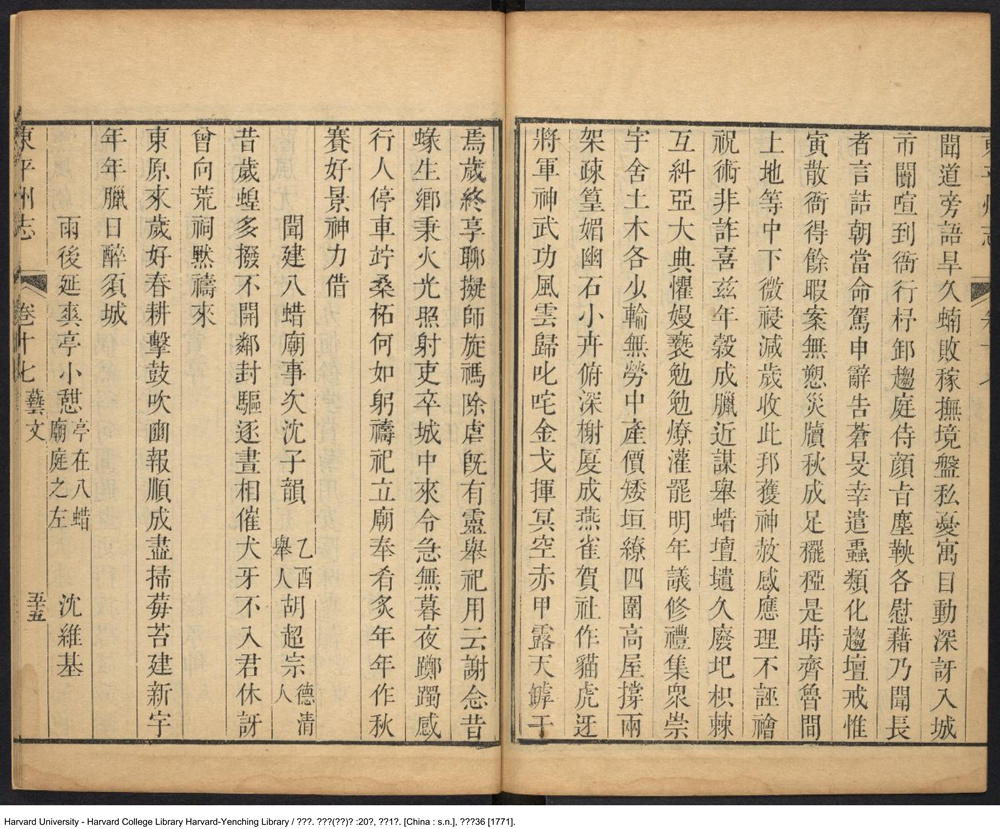 聞道旁語旱久蝻敗稼撫境盤私憂寓目動深訝入城
市闤喧到衙行杼卸趨庭侍顔㫖塵鞅各慰藉乃聞長
者言詰朝當命駕申辭告蒼旻幸遣蟊類化趨壇戒惟
寅散衙得餘暇案無愬災牘秋成足䆉稏是時齊魯間
上地等中下微祲減歲收此邦獲神赦感應理不誣禬
祝術非詐喜兹年穀成臘近謀舉蜡壇壝久廢圯枳棘
互糾亞大典懼嫚褻勉勉燎灌罷明年議修禮集衆崇
宇舍土木各少輸無勞中產價矮垣繚四圍高屋撐兩
架疎篁媚幽石小卉俯深榭廈成燕雀賀社作貓虎迓
將軍神武功風雲歸叱咤金戈揮冥空赤甲露天罅干
焉歲終享聊擬師旋禡除虐旣有靈舉祀用云謝念昔
蝝生鄉秉火光照射吏卒城中來令急無暮夜躑躅感
行人停車竚桑柘何如躬禱祀立廟奉肴炙年年作秋
賽好景神力借
聞建八蜡廟事次沈子韻 乙酉舉人胡超宗 德清人
昔歲蝗多撥不開鄰封驅逐晝相催犬牙不入君休訝
曾向荒祠黙禱來
東原來歲好春耕擊鼓吹豳報順成盡掃莓苔建新宇
年年臘日醉須城
雨後延爽亭小憇 亭在八蜡廟庭之左 沈維基
東平州志 卷十七 藝文 五十五